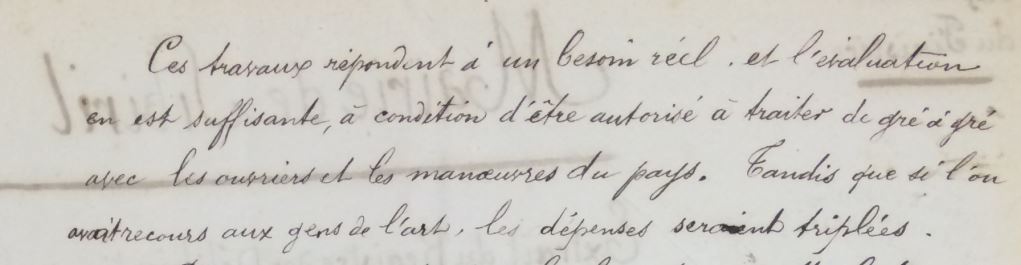 Ces travaux répondent à un besoin réel. et l'évaluation
en est suffisante, à condition d'être autorisé à traiter de gré à gré
avec les ouvriers et les manœuvres du pays. Tandis que si l'on
avait recours aux gens de l'art, les dépenses seraient triplées.